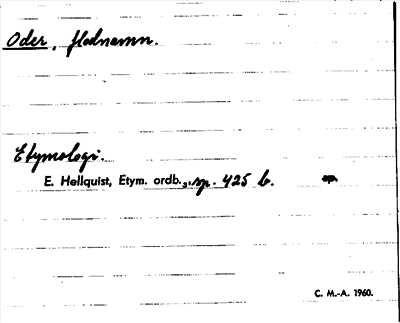 Oder, flodnamn.
Etymologi.
E. Hellquist, Etym. ordb., sp. 425 b.
C. M.-A. 1960.